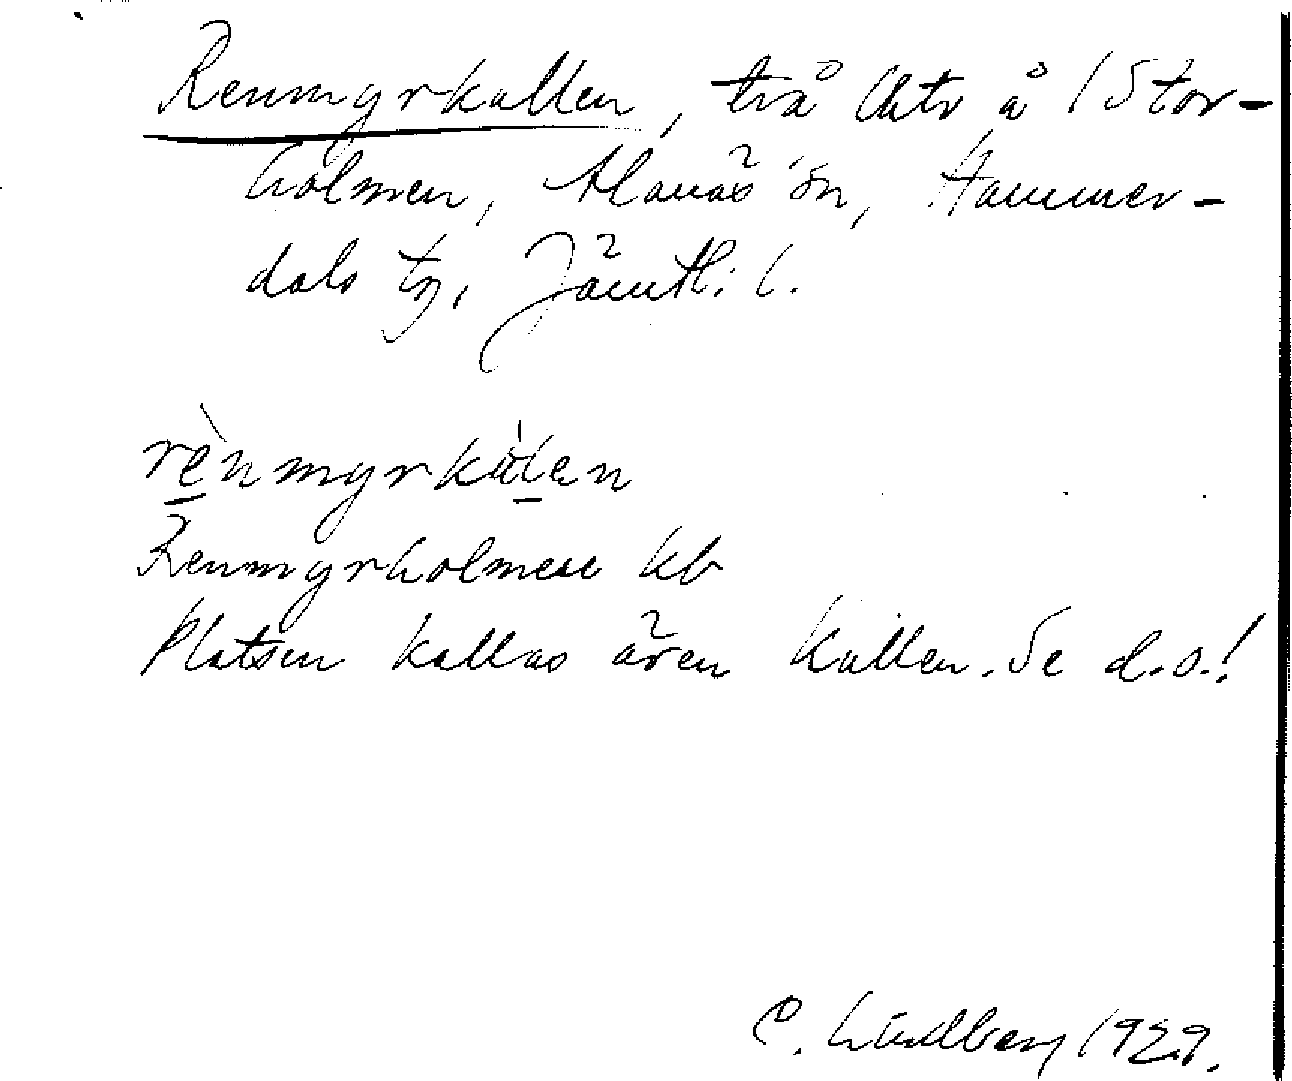 Renmyrkullen, trå Chtr å 1 Stor-
holmen, Alanäs sn, Hammer-
dals tg, Jämtl: l.
rènmyrkùlen
Renmyrholmen kb
Platsen kallas även Kullen. Se d.o.!
C. Lindberg 1929.